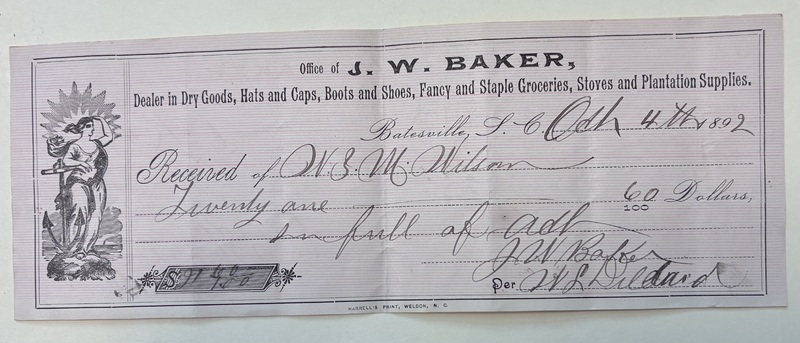 Office of J. W. BAKER,
Dealer in Dry Goods, Hats and Caps, Boots and Shoes, Fancy and Staple Groceries, Stoves and Plantation Supplies.
Batesville, S. C. Oct 4th 1892
Received of W. S. M. Wilson
Twenty one 60/100 Dollars,
in full of act
J W Baker
$ 21 60/100 Per W L Dillard
HARRELL'S PRINT, WELDON, N. C.